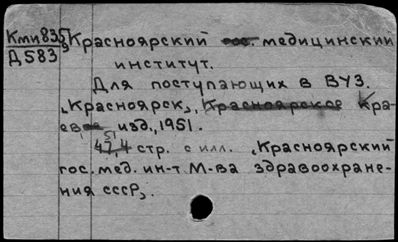 Кми835
Д583
Красноярский гос. медицинский
институт.
Для поступающих в ВУЗ.
„Красноярск", Красноярское Кра-
ев изд., 1951.
51
47,4 стр. с илл. „Красноярский
гос. мед. ин-т М-ва здравоохране-
ния СССР".